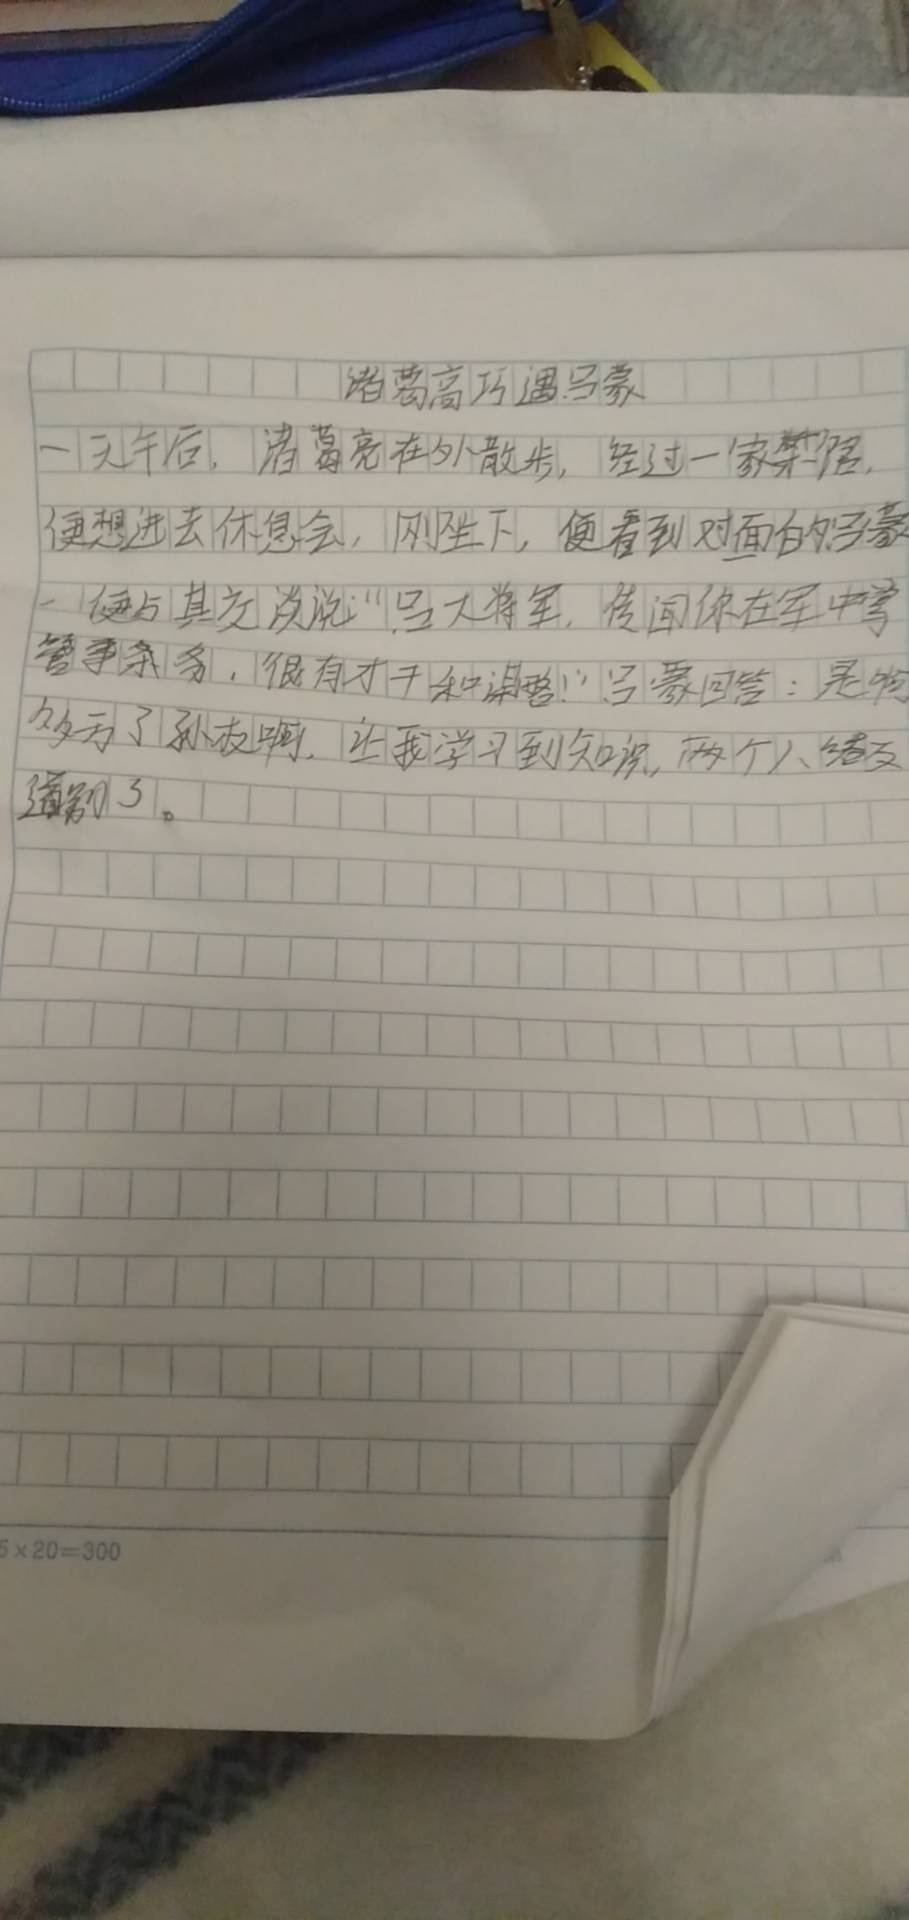 诸葛高巧遇吕蒙
一天午后，诸葛亮在外散步，经过一家茶馆，
便想进去休息会，刚坐下，便看到对面的吕蒙
一便与其交谈说：“吕大将军，传闻你在军中掌
管事务多，很有才干和谋略！”吕蒙回答：是啊
多亏了孙权啊，让我学习到知识，两个人结友
道别了。
5×20=300